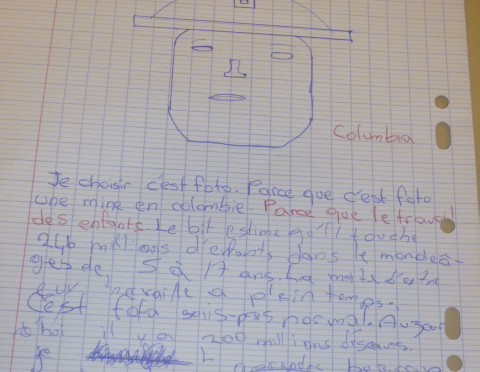 Columbia
Je choisir c'est foto. Parce que c'est foto
une mine en colombie. Parce que le travail
des enfants Le bit estime qu'il touche
246 millions d'enfants dans le monde â-
gés de 5 à 17 ans. La moité d'entre
eux travaille a plein temps.
C'est foto sois-pas normal. Aujour
d'hoi il y a 200 millions
je